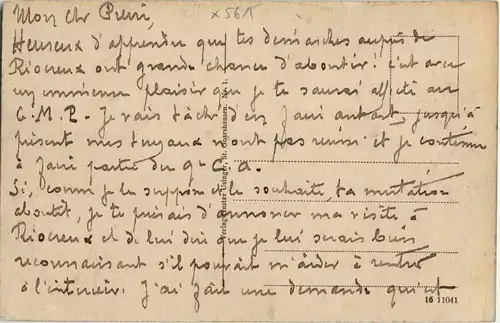 x 561
Mon Chr Pierre,
Heureux d'apprendre que tes démarches auprès de
Riocreux ont grande chance d'aboutir: c'est avec
un immense plaisir que je te saurai affecté au
C.M.P. Je vais tâcher d'en faire autant, jusqu'à
présent mes tuyaux n'ont pas réussi et je continue
à faire partie du q C.A.
Si, comme je le suppose et le souhaite, ta mutation
aboutit, je te prierais d'annoncer ma visite à
Riocreux et de lui dire que je lui serais bien
reconnaissant s'il pouvait m'aider à rentrer
à l'intérieur. J'ai fait une demande qu'est
16 11041